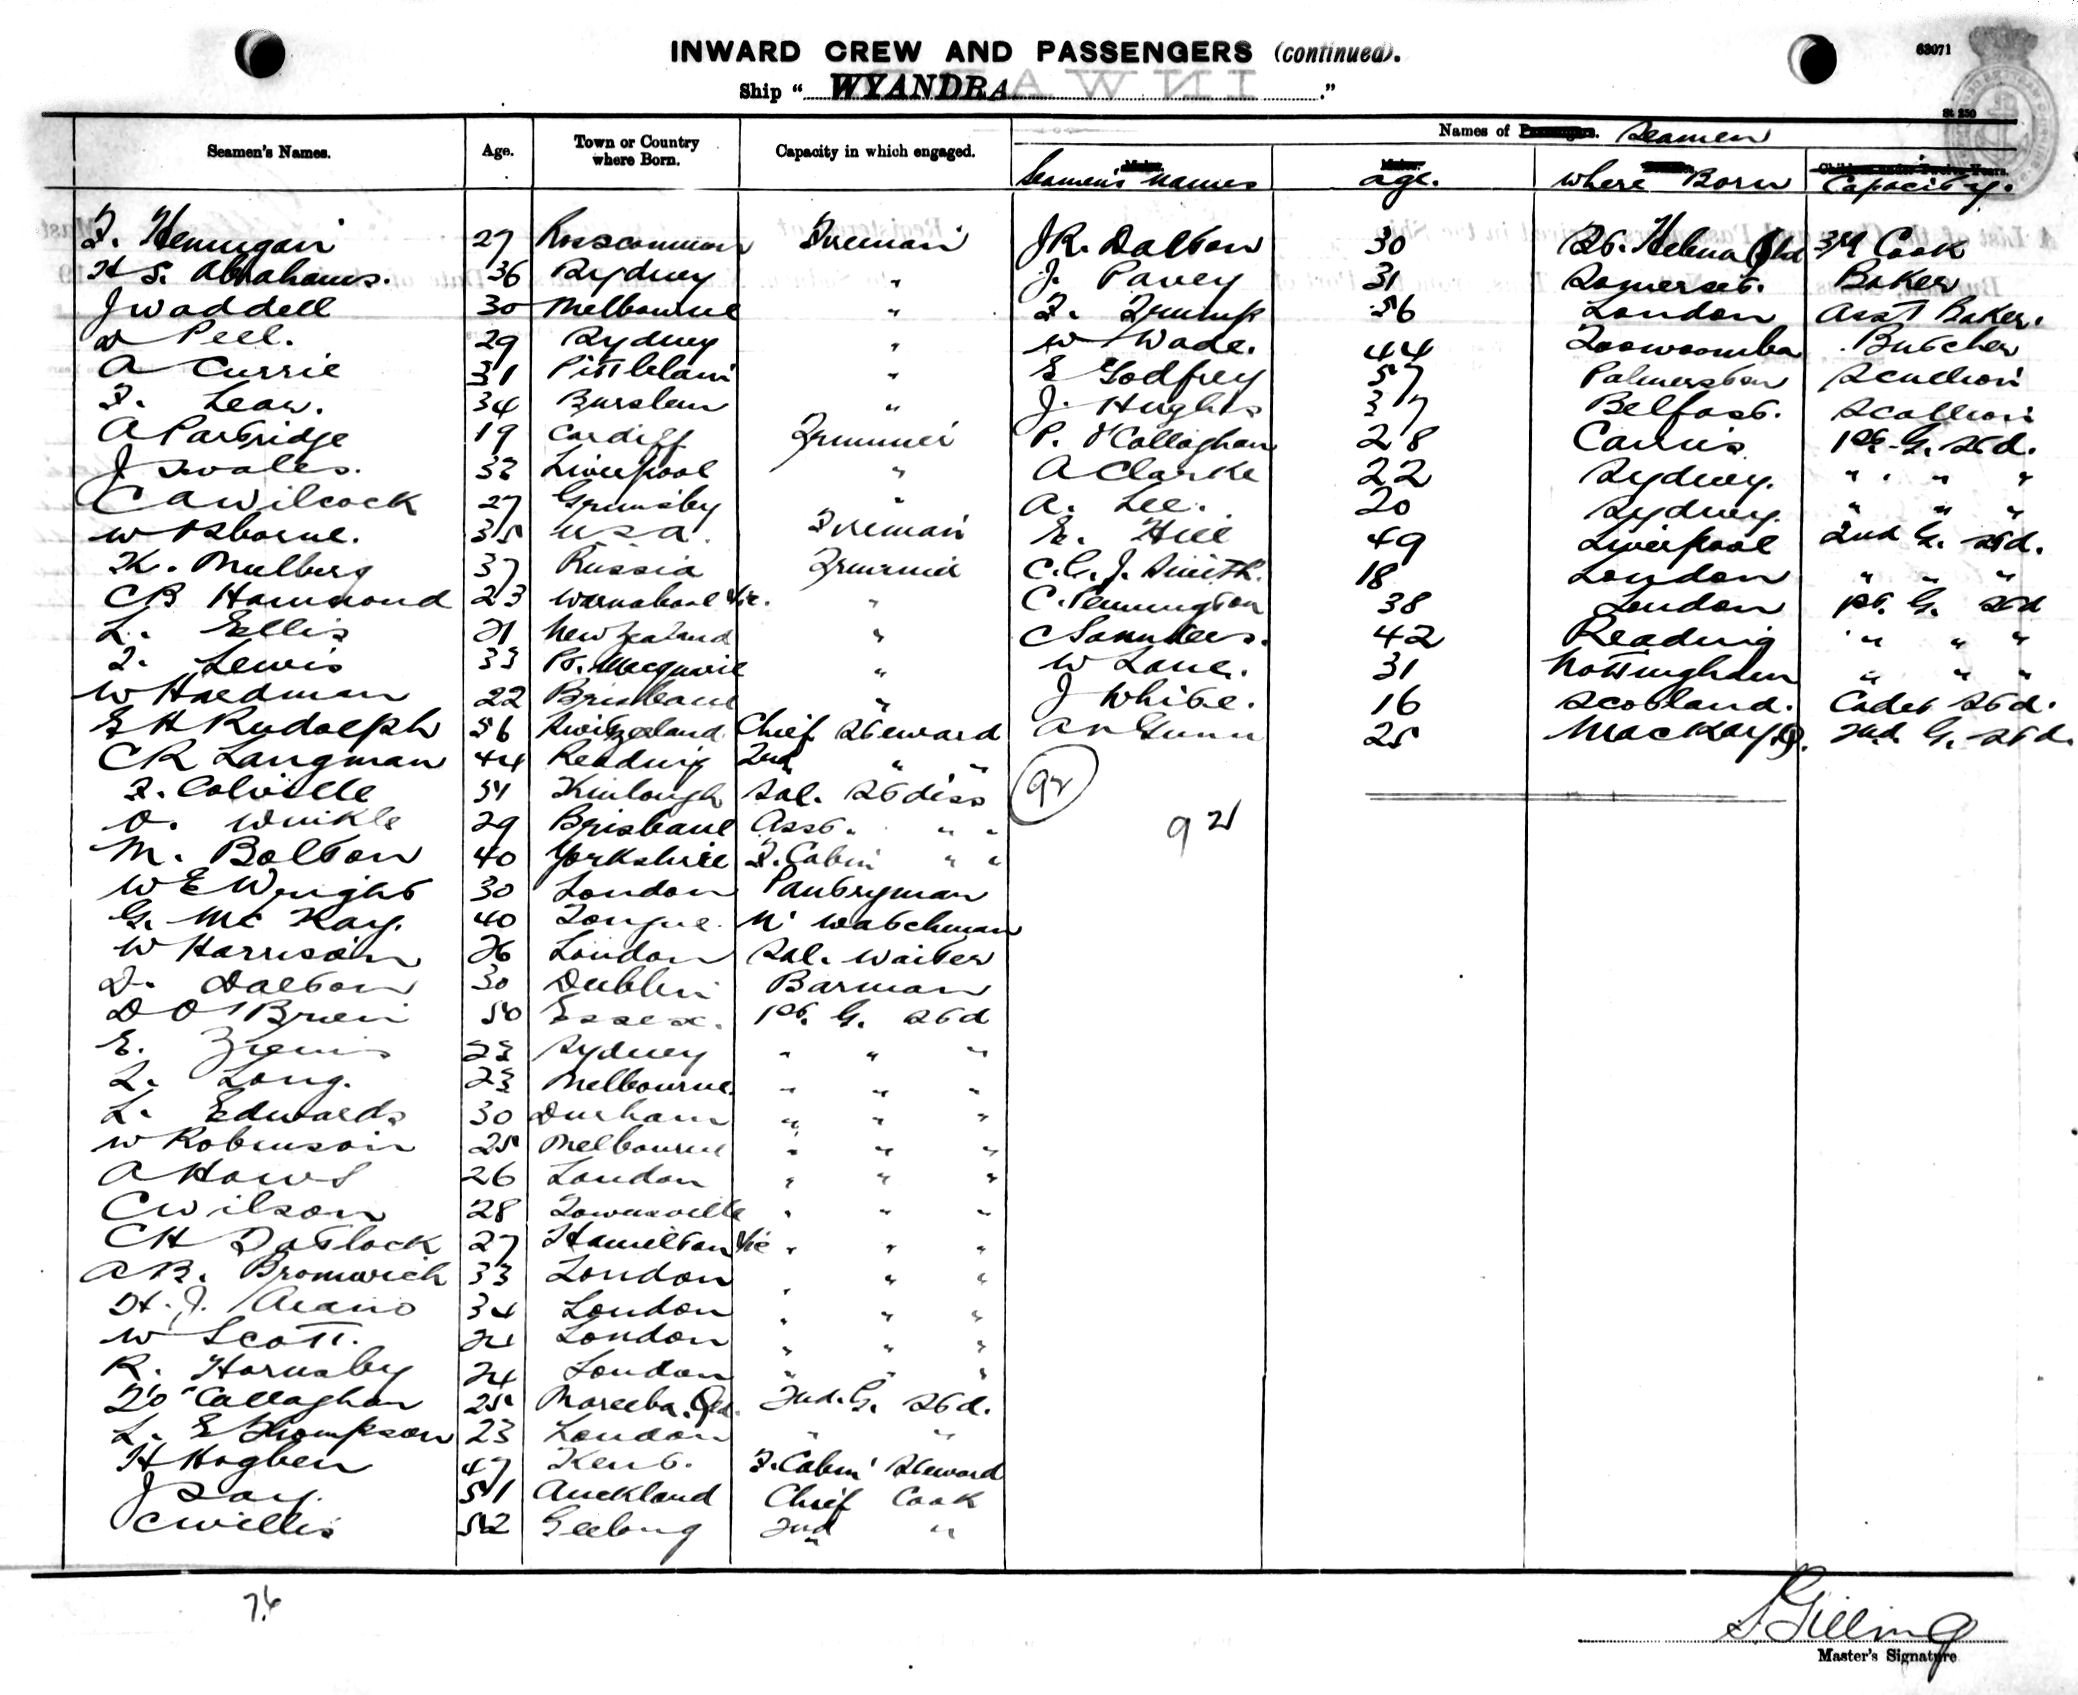 INWARD CREW AND PASSENGERS (continued).
63071
Ship "WYANDRA"
St 250
Seamen's Names. Age. Town or Country where Born. Capacity in which engaged.
Names of Passengers. Seamen
Seamen's Names age. Where Born Capacity.
27 Roscommon Fireman
H S. Abrahams. 36 Sydney "
J Waddell 30 Melbourne "
Peel. 29 Sydney "
A Currie 31 "
34 Burslem "
A Partridge 19 Cardiff Trimmer
J Swales. Liverpool "
C A Wilcock 27 Grimsby "
W Osborne. 35 USA. Fireman
K. Mulberg 37 Russia Trimmer
C B Hammond 23 Warnabool Vic. "
L. Ellis 21 New Zealand "
F. Lewis 33 Pt. Macquarie "
W Hardman 22 Brisbane "
E H Rudolph 56 Switzerland Chief Steward
C R Langman 44 Reading 2nd " "
F. Colville 51 Kinlough Sal. Stdiss
O. Winkle 29 Brisbane Asst. " "
M. Bolton 40 Yorkshire F. Cabin " "
W E Wright 30 London Pantryman
G. Mc Kay. 40 Tongue. N' Watchman
W Harrison 26 London Sal. Waiter
Dalton 30 Dublin Barman
D O'Brien 50 Essex. 1st. G. Std
E. 23 Sydney " " "
L. Long. 23 Melbourne. " " "
L. Edwards 30 Durham " " "
W Robinson 25 Melbourne " " "
A Hows 26 London " " "
C Wilson 28 Townsville " " "
C H Tatlock 27 Hamilton Vic " " "
A B. Bromwich 33 London " " "
H. J. 34 London " " "
W Scott. 24 London " " "
R. Hornsby 24 London " " "
O'Callaghan 25 Mareeba. Qld. 2nd. G. Std.
L. E Thompson 23 London " "
H Hogben 47 Kent. F. Cabin Steward
J 51 Auckland Chief Cook
C Willis 52 Geelong 2nd "
J R. Dalton 30 St. Helena Qld 3rd Cook
J. Pavey 31 Somerset. Baker
F. Trump 56 London Asst Baker.
W Wade. 44 Toowoomba Butcher
E Godfrey 57 Palmerston Scullion
J. Hughes 37 Belfast. Scullion
P. O'Callaghan 28 Cairns 1st. G. Std.
A Clarke 22 Sydney. " " "
A. Lee. 20 Sydney. " " "
E. Hill 49 Liverpool 2nd G. Std.
C. G. J. Smith. 18 London " " "
C. Pennington 38 London 1st. G. Std
C Saunders. 42 Reading " " "
W Lane. 31 Nottingham " " "
J White. 16 Scotland. Cadet Std.
A N Gunn 25 MacKay Q. 2nd G. Std.
92
92
76
Master's Signature